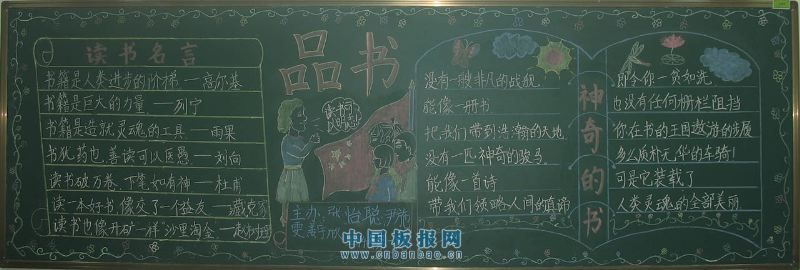 读书名言
书籍是人类进步的阶梯——高尔基
书籍是巨大的力量——列宁
书籍是造就灵魂的工具——雨果
书犹药也,善读可以医愚——刘向
读书破万卷,下笔如有神——杜甫
读一本好书像交了一个益友——臧克家
读书也像开矿一样"沙里淘金"——赵树理
品书
主办:张怡聪
没有一艘非凡的战舰
能像一册书
把我们带到浩瀚的天地
没有一匹神奇的骏马
能像一首诗
带我们领略人间的真谛
神奇的书
即令你一贫如洗
也没有任何栅栏阻挡
你在书的王国遨游的步履
多么质朴无华的车骑!
可是它装载了
人类灵魂的全部美丽
中国板报网
www.cnbanbao.cn